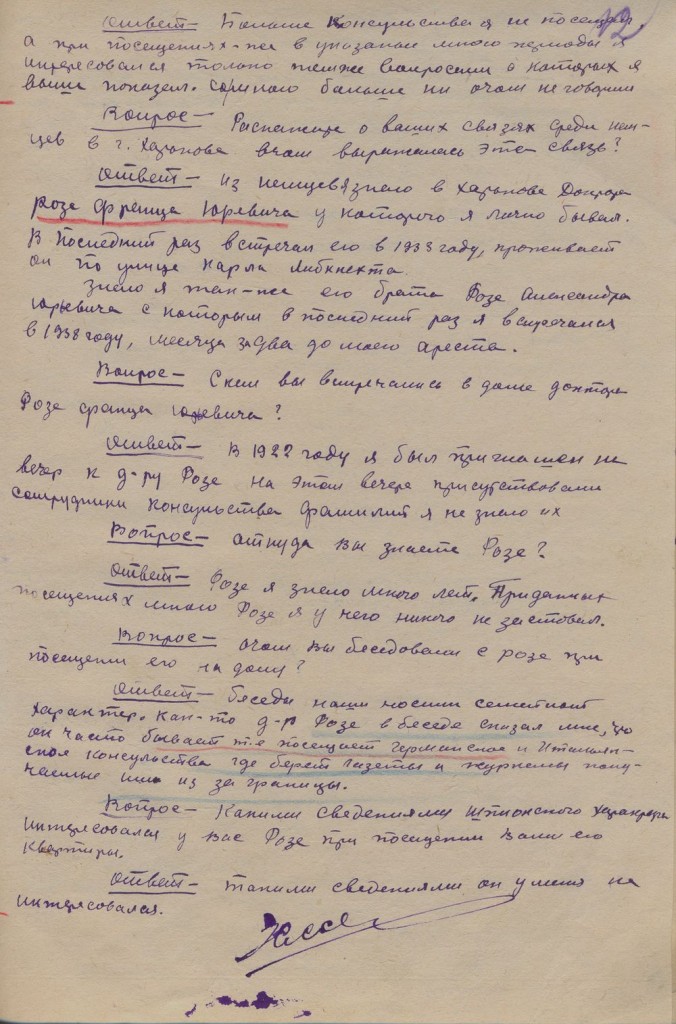 12
Ответ – Больше консульства я не посещал
а при посещениях-же в указанные мною периоды я
интересовался только теми же вопросами о которых я
выше показал. Со мною больше ни о чом не говорили
Вопрос – Раскажите о ваших связях среди нем-
цев в г. Харькове в чом выражалась эта связь?
Ответ – из немцев я знаю в Харькове Доктора
Розе Франца Юревича у которого я лично бывал.
В последний раз встречал его в 1933 году, проживает
он по улице Карла Либкнехта.
Знаю я так-же его брата Розе Александра
Юрьевича с которым в последний раз я встречался
в 1938 году, месяца за два до моего ареста.
Вопрос – С кем вы встречались в доме доктора
Розе Франца Юревича?
Ответ – В 1922 году я был приглашен на
вечер к д-ру Розе на этом вечере присутствовали
сотрудники консульства фамилии я не знаю их
Вопрос – откуда вы знаете Розе?
Ответ – Розе я знаю много лет. При данных
посещениях мною Розе я у него никого не заставал.
Вопрос – о чом вы беседовали с розе при
посещении его на дому?
Ответ – беседы наши носили семейный
характер. Как-то д-р Розе в беседе сказал мне, что
он часто бывает т.е посещает Германское и Итальян-
ское консульства где берет газеты и журналы полу-
чаемые ими из за границы.
Вопрос – Какими сведениями шпионского характера
интересовался у вас Розе при посещении вами его
квартиры.
Ответ – такими сведениями он у меня не
интересовался.